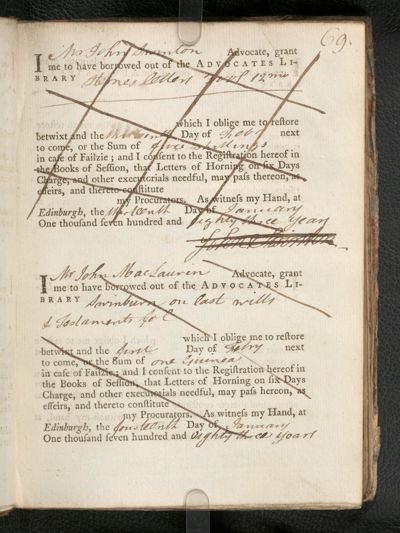 69.
I Mr John Swinton Advocate, grant
me to have borrowed out of the ADVOCATES LI-
BRARY
which I oblige me to reſtore
betwixt and the Day of Febry next
to come, or the Sum of five Shillings
in caſe of Failzie; and I conſent to the Regiſtration hereof in
the Books of Seſſion, that Letters of Horning on ſix Days
Charge, and other executorials needful, may paſs thereon, as
effeirs, and thereto conſtitute
my Procurators. As witneſs my Hand, at
Edinburgh, the thirteenth Day of January
One thousand ſeven hundred and eighty three Years
John Swinton
I Mr John MacLaurin Advocate, grant
me to have borrowed out of the ADVOCATES LI-
BRARY Swinburn on last wills
& Testaments &c
which I oblige me to reſtore
betwixt and the first Day of Febry next
to come, or the Sum of one Guinea
in caſe of Failzie; and I conſent to the Regiſtration hereof in
the Books of Seſſion, that Letters of Horning on ſix Days
Charge, and other executorials needful, may paſs hereon, as
effeirs, and thereto conſtitute
my Procurators. As witneſs my Hand, at
Edinburgh, the fourteenth Day of January
One thouſand ſeven hundred and eighty three years